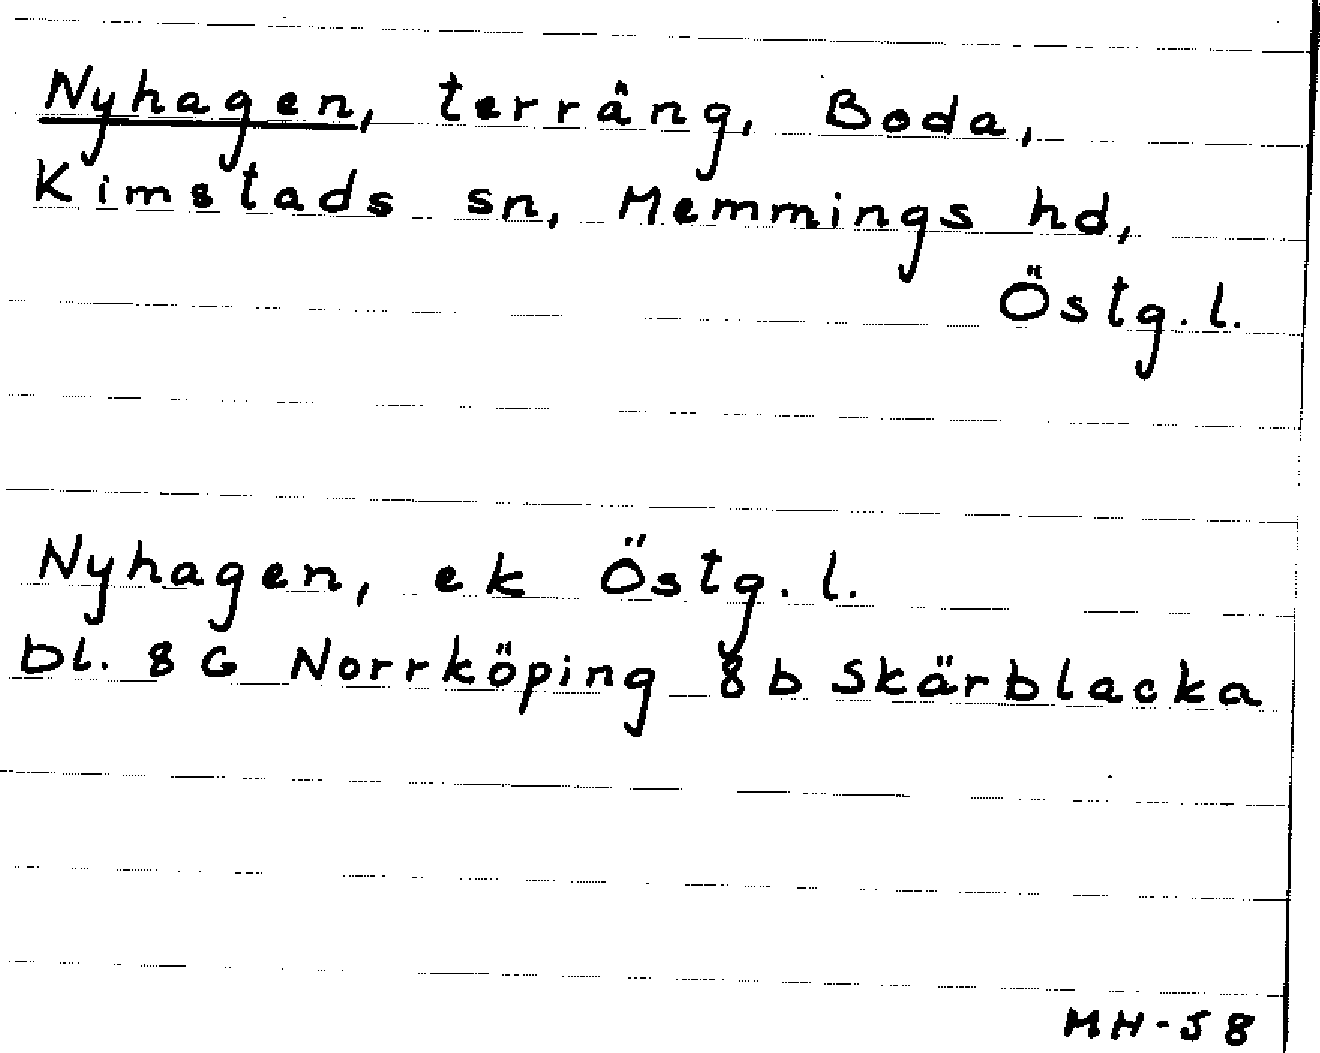 Nyhagen, terräng, Boda,
Kimstads sn, Memmings hd,
Östg. l.
Nyhagen, ek Östg. l.
bl. 8 G Norrköping 8 b Skärblacka
MH-58